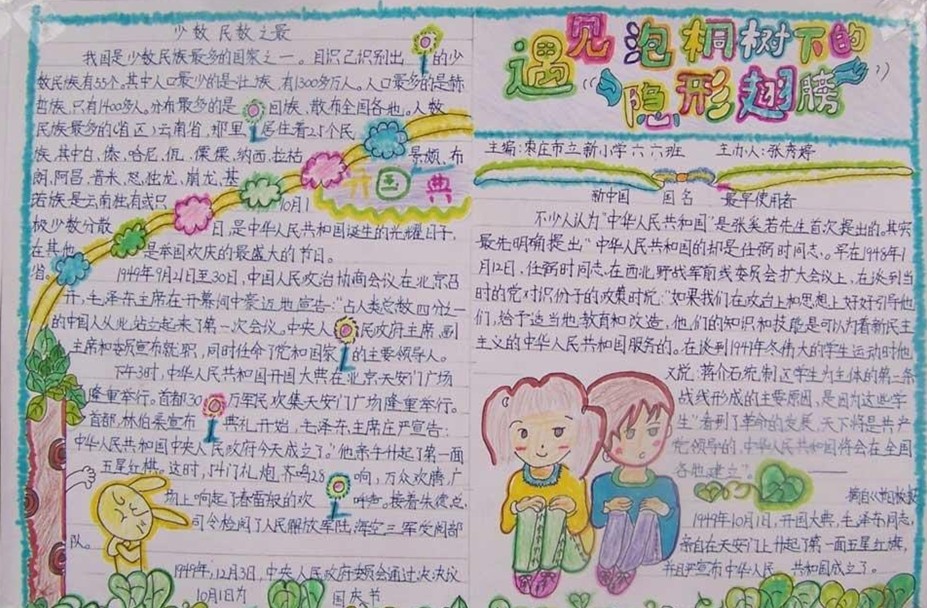 少数民数之最
我国是少数民族最多的国家之一。目识已识别出的少
数民族有55个。其中人口最少的是壮族,有1300多万人。人口最多的是赫
哲族,只有1400多人。分布最多的是回族,散布全国各地。人数
民族最多的(省区)云南省,那里居住着25个民
族,其中白、傣、哈尼、佤、傈僳、纳西、拉祜
景颇、布
朗、阿昌、普米、怒、独龙、崩龙、基
若族是云南独有或只
极少数分散
在其他
省。
开国典
10月1
日,是中华人民共和国诞生的光耀日子,
是举国欢庆的最盛大的节日。
1949年9月21日至30日,中国人民政治协商会议在北京召
开,毛泽东主席在开幕词中豪迈地宣告:“占人类总数四分之一
的中国人从此站立起来了第一次会议。中央人民政府主席、副
主席和委员宣布就职,同时任命了党和国家的主要领导人。
下午3时,中华人民共和国开国大典在北京天安门广场
隆重举行。首都30万军民欢集天安门广场隆重举行。
首都,林伯渠宣布典礼开始,毛泽东主席庄严宣告:
中华人民共和国中央人民政府今天成立了。”他亲手升起了第一面
五星红旗。这时,54门礼炮齐鸣28响,万众欢腾,广
场上响起了春雷般的欢呼声。接着朱德总
司令检阅了人民解放军陆、海空三军受阅部
队。
1949年,12月3日,中央人民政府委员会通过决决议
10月1为国庆节
遇见泡桐树下的
隐形翅膀
主编:枣庄市立新小学六六班 主办人:张秀婷
新中国国名最早使用者
不少人认为“中华人民共和国”是张奚若先生首次提出的,其实
最先明确提出“中华人民共和国的却是任弼时同志。早在1948年1
月12日,任弼时同志,在西北野战军前线委员会扩大会议上,在谈到当
时的党对识份子的政策时说:“如果我们在政台上和思想上好好引导他
们,给予适当地教育和改造,他们的知识和技能是可以为着新民主
主义的中华人民共和国服务的。在谈到1947年冬伟大的学生运动时他
又说:蒋介石统制区学生为主体的第二条
战线形成的主要原因,是因为这些学
生“看到了革命的发展,天下将是共产
党领导的,中华人民共和国将会在全国
各地建立”。
摘自《英国快报
1949年10月1日,开国大典,毛泽东同志,
亲自在天安门上升起了第一面五星红旗,
并且严宣布中华人民共和国成立了。